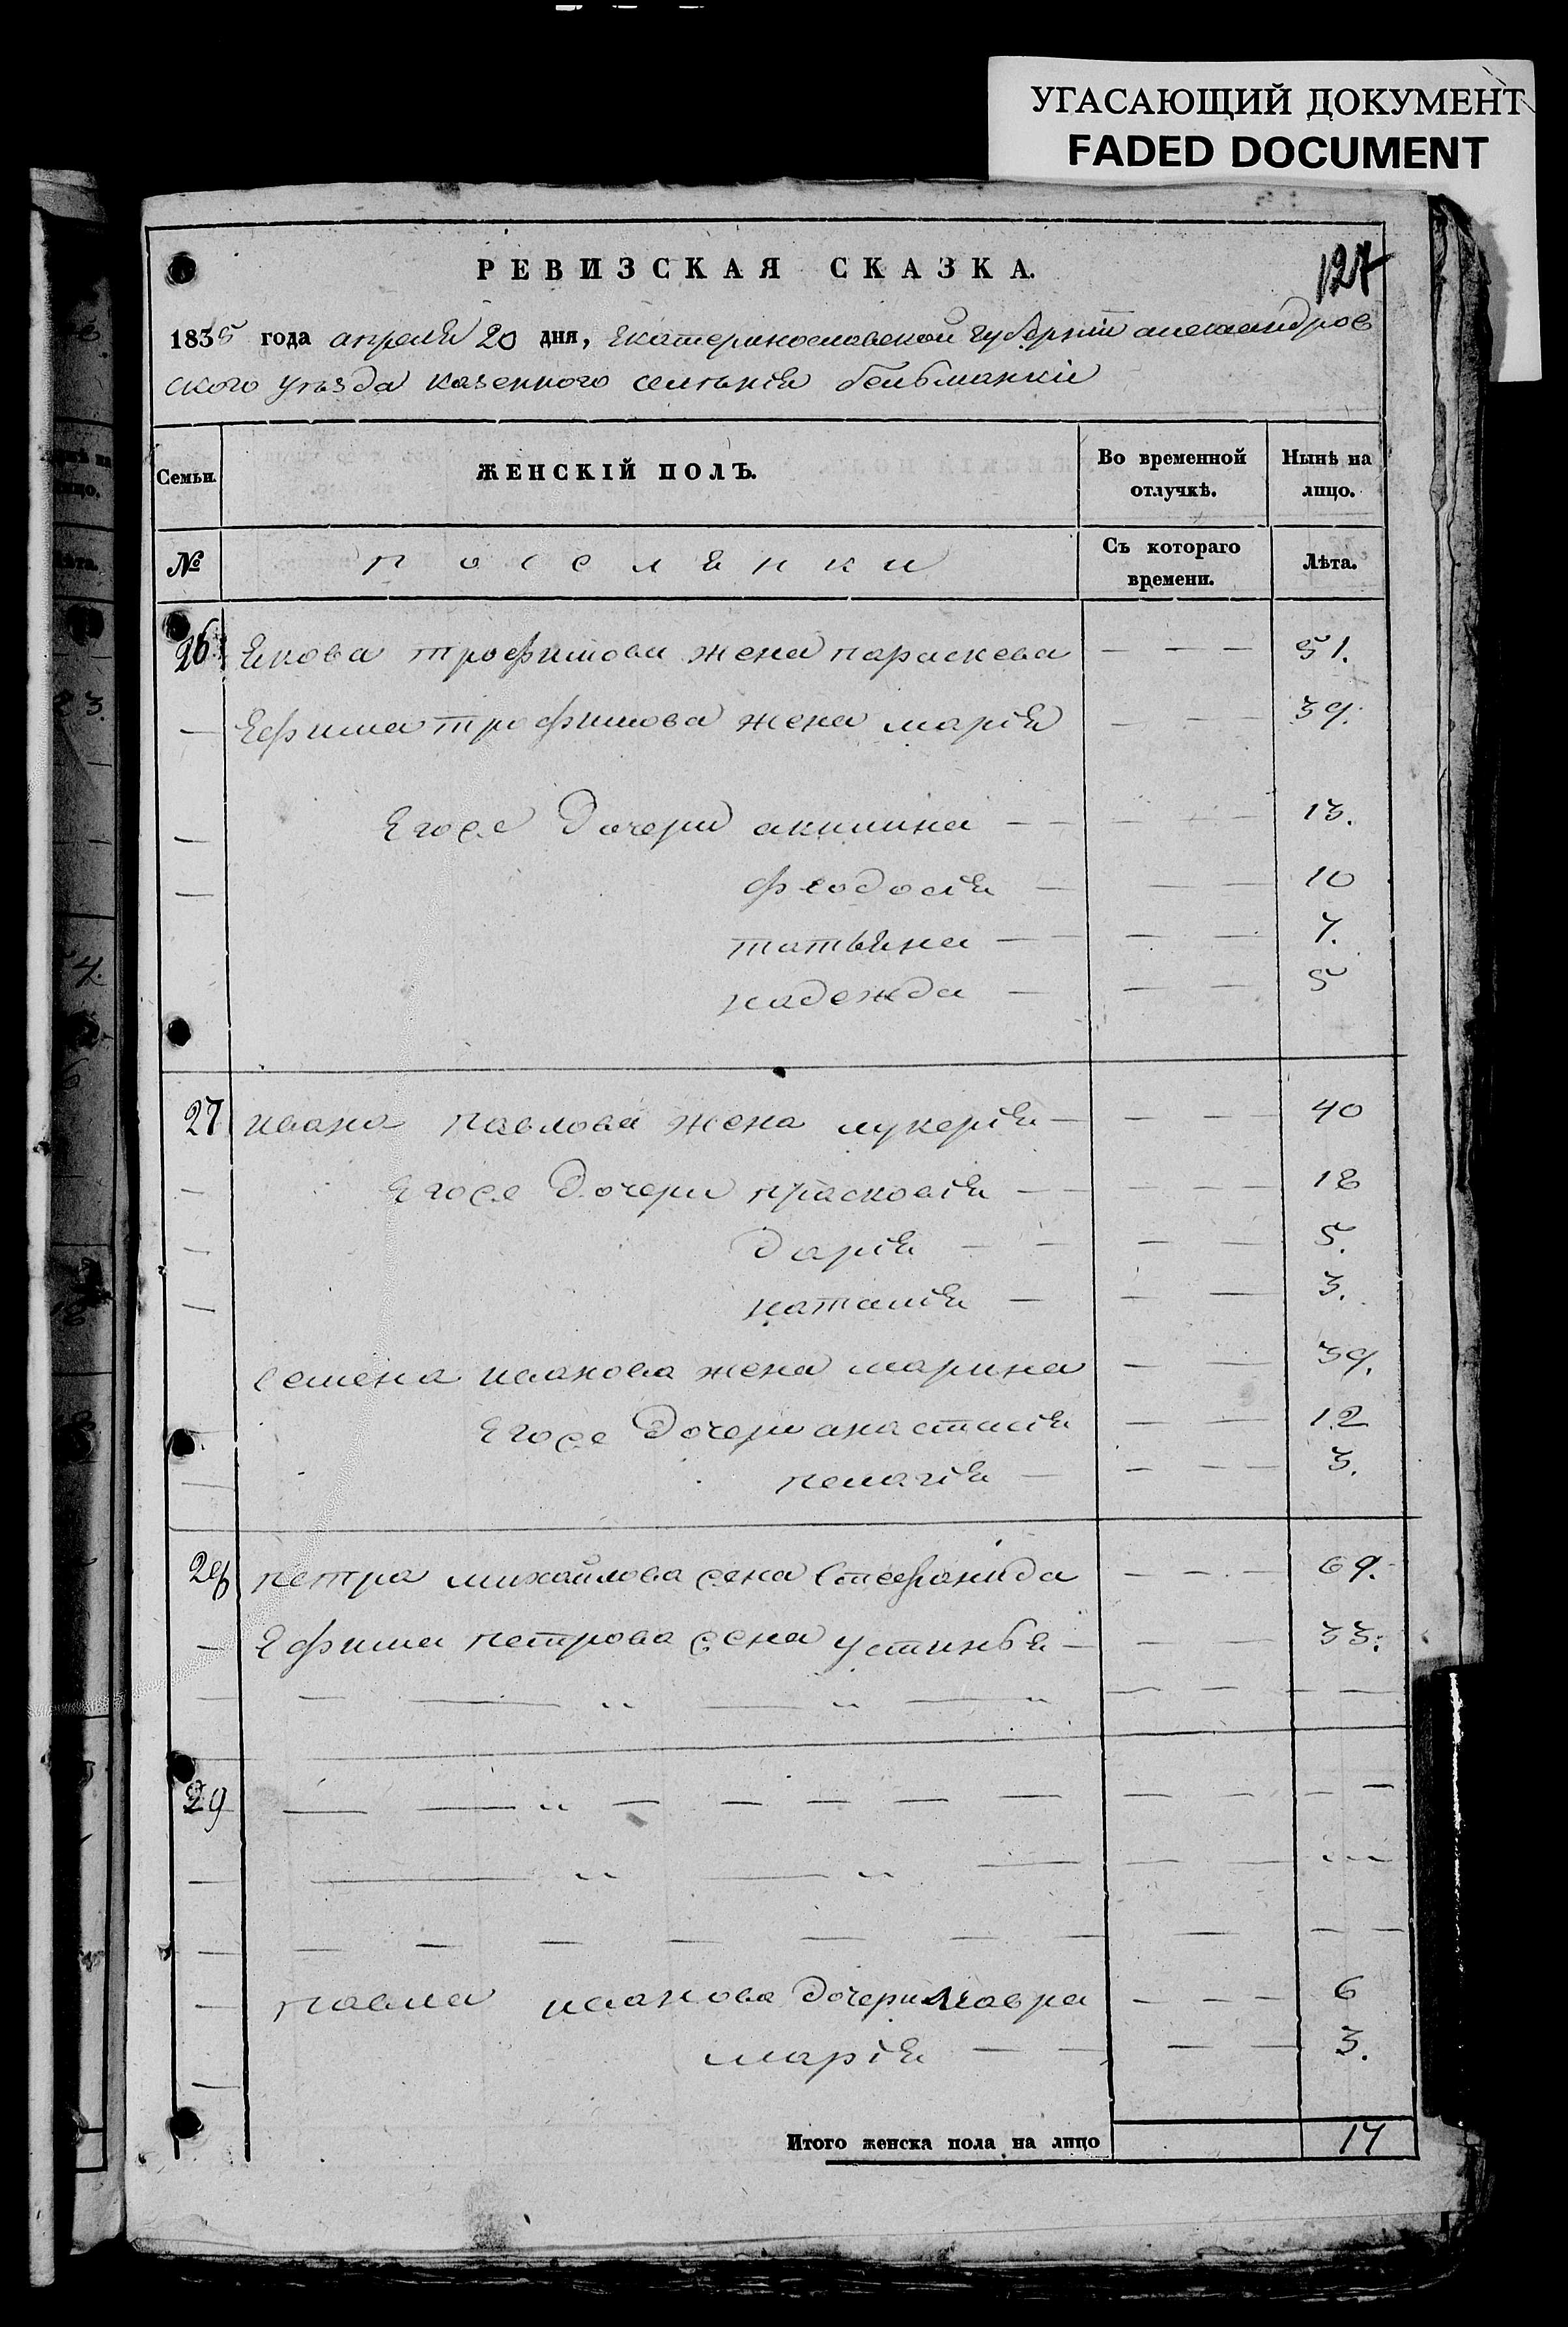 УГАСАЮЩИЙ ДОКУМЕНТ
FADED DOCUMENT
РЕВИЗСКАЯ СКАЗКА.
127
1835 года апреля 20 дня, Екатеринославской губерніи александров
ского уѣзда казенного селѣнія бельманки
Семьи. ЖЕНСКІЙ ПОЛЪ. Во временной отлучкѣ. Нынѣ на лицо.
№ поселянки Съ котораго времени. Лѣта.
26 Якова трофимова жена параскева — — — 51.
— Ефима трофимова жена марія — — — 39.
— Егоже дочери акилина — — — — — 13.
— феодосія — — — 10
татьяна — — — — 7.
надежда — — — — 5
27 ивана павлова жена лукерія — — — — 40
— Егоже дочери прасковія — — — — — 18
— дарія — — — — — 5.
— наталія — — — — 3.
семена иванова жена марина — — 39.
— Егоже дочери анастасія — — 12
— пелагія — — — — 3.
28 петра михайлова жена Стефанида — — — 69.
— Ефима петрова жена устинья — — — 33.
29
— павла иванова дочери мавра — — — 6
марія — — — — 3.
—
Итого женска пола на лицо 17